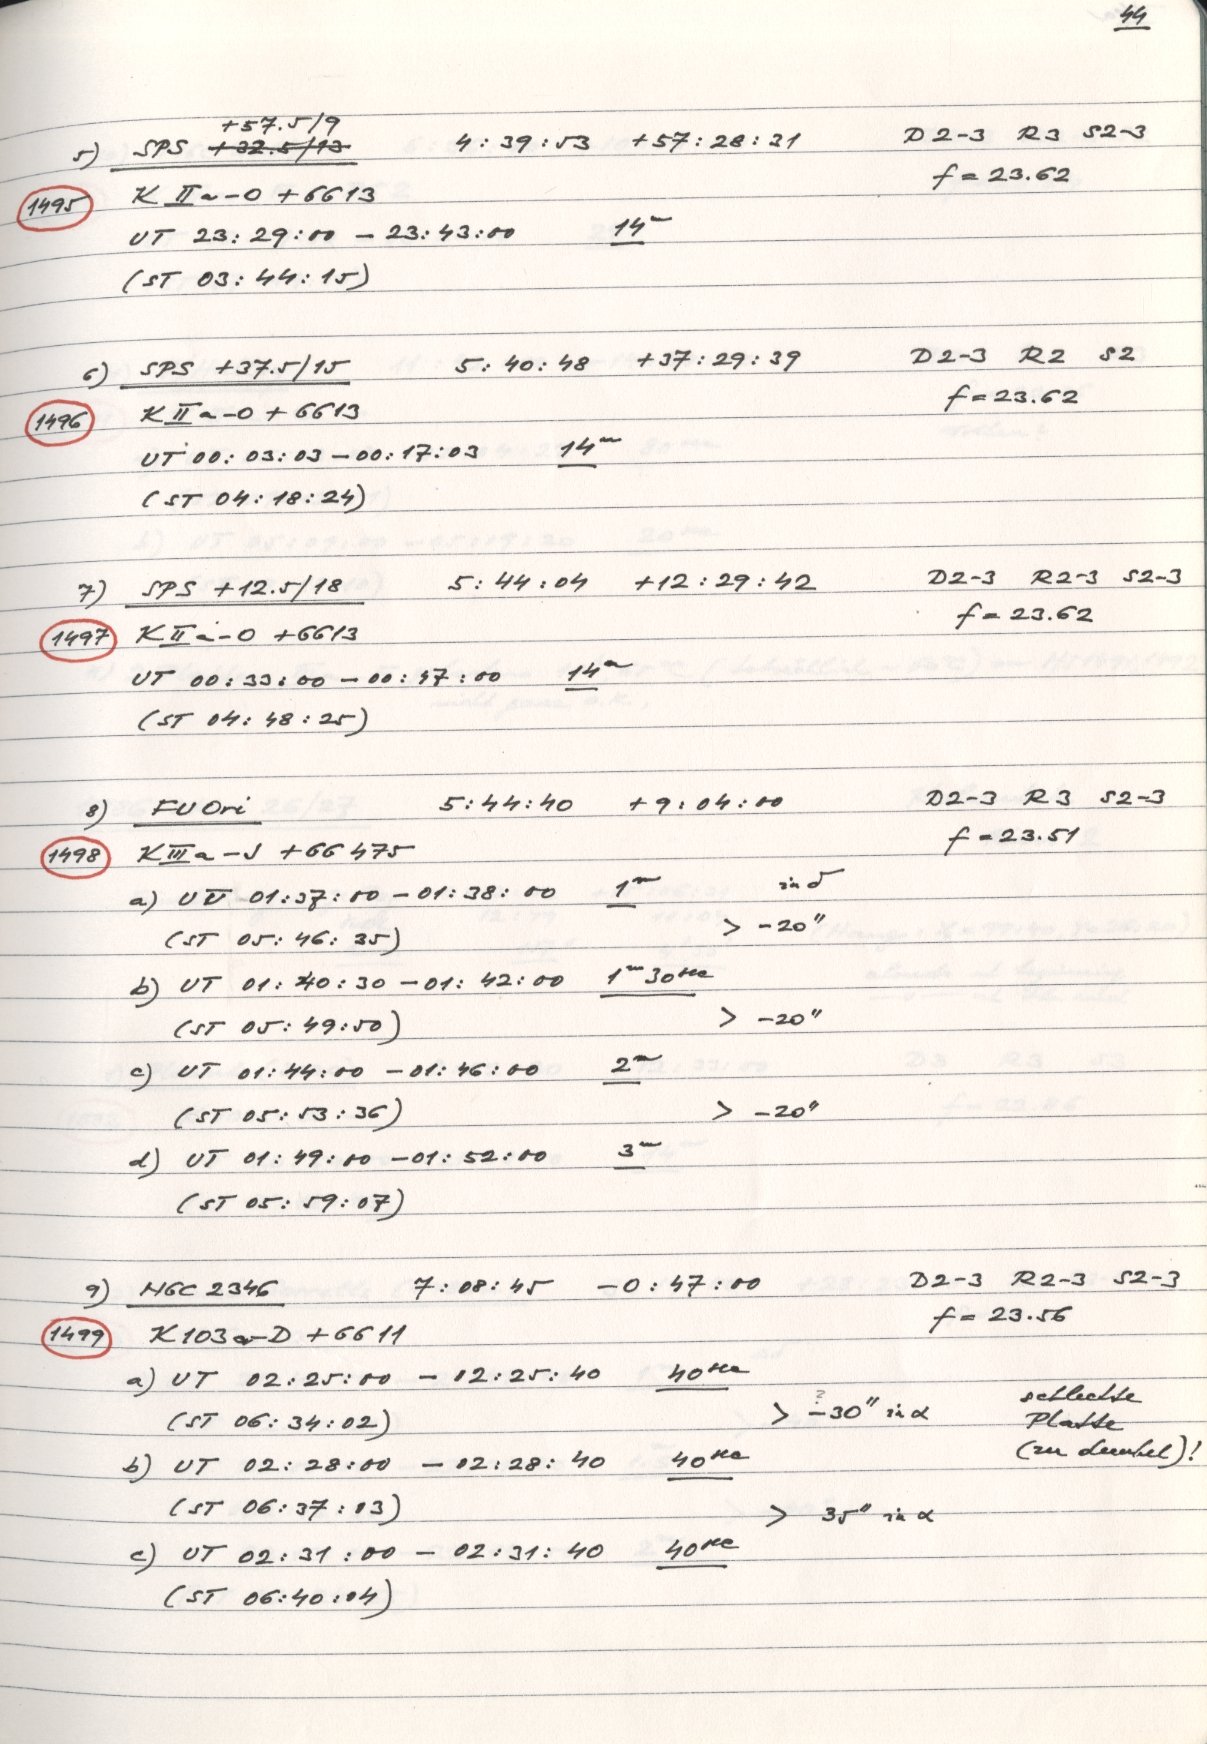 44
+57.5/9
5) SPS +32.5/13 4:39:53 +57:28:31 D2-3 R3 S2-3
f = 23.62
1495 K IIa-O + GG13
UT 23:29:00 - 23:43:00 14m
(ST 03:44:15)
6) SPS +37.5/15 5:40:48 +37:29:39 D2-3 R2 S2
f = 23.62
1496 K IIa-O + GG13
UT 00:03:03 - 00:17:03 14m
(ST 04:18:24)
7) SPS +12.5/18 5:44:04 +12:29:42 D2-3 R2-3 S2-3
f = 23.62
1497 K IIa-O + GG13
UT 00:33:00 - 00:47:00 14m
(ST 04:48:25)
8) FU Ori 5:44:40 +9:04:00 D2-3 R3 S2-3
f = 23.51
1498 K IIIa-J + GG475
a) UT 01:37:00 - 01:38:00 1m in δ
(ST 05:46:35) > -20"
b) UT 01:40:30 - 01:42:00 1m30sec
(ST 05:49:50) > -20"
c) UT 01:44:00 - 01:46:00 2m
(ST 05:53:36) > -20"
d) UT 01:49:00 - 01:52:00 3m
(ST 05:59:07)
9) NGC 2346 7:08:45 -0:47:00 D2-3 R2-3 S2-3
f = 23.56
1499 K103a-D + GG11
a) UT 02:25:00 - 02:25:40 40sec
(ST 06:34:02) > ? -30" in α schlechte
Platte
b) UT 02:28:00 - 02:28:40 40sec (zu dunkel)!
(ST 06:37:03) > 35" in α
c) UT 02:31:00 - 02:31:40 40sec
(ST 06:40:04)